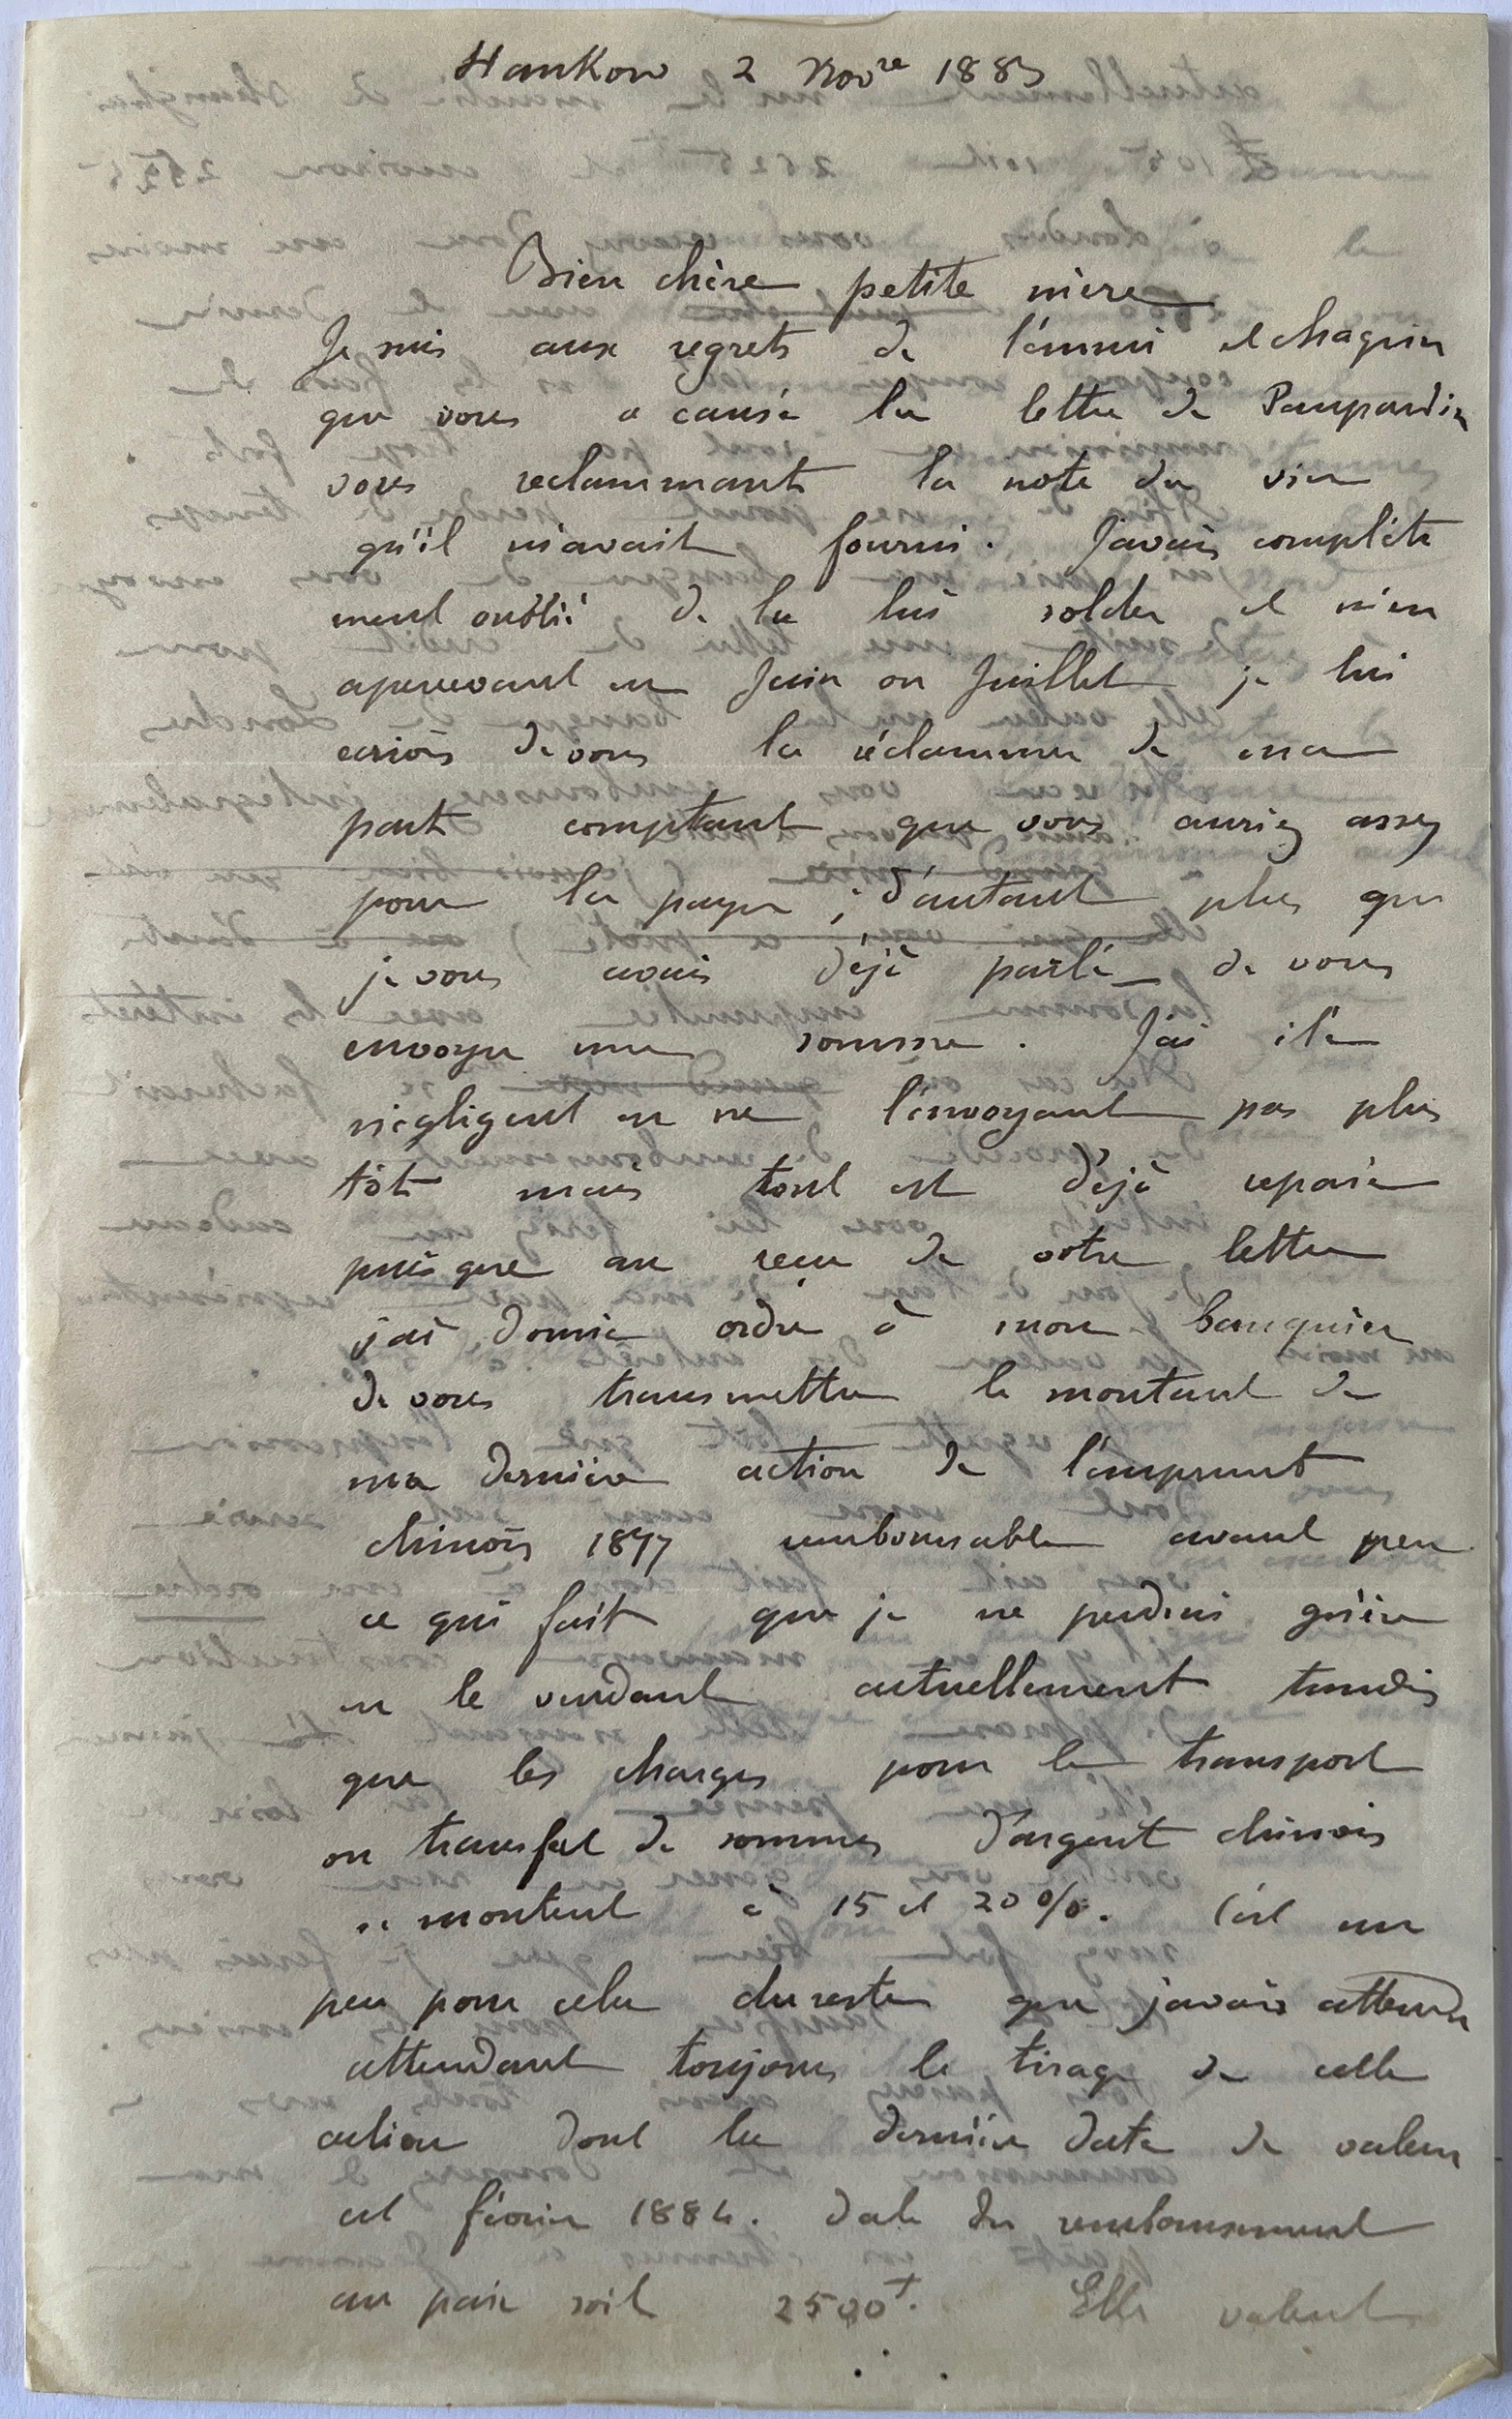 Hankow 2 Novre 1883
Bien chère petite mère
Je suis aux regrets de l'ennui et chagrin
que vous a causé la lettre de Pampardin
vous reclammant la note du vin
qu'il m'avait fourni. J'avais complète
ment oublié de la lui solder et m'en
apercevant en Juin ou Juillet je lui
écrivis de vous la réclammer de ma
part comptant que vous auriez assez
pour la payer ; d'autant plus que
je vous avais déjà parlé de vous
envoyer une somme. J'ai été
négligent en ne l'envoyant pas plus
tôt mais tout est déjà reparé
puisque au reçu de votre lettre
j'ai donné ordre à mon banquier
de vous transmettre le montant de
ma dernière action de l'emprunt
chinois 1877 remboursable avant peu
ce qui fait que je ne perdrai guère
en le vendant actuellement tandis
que les charges pour le transport
ou transfert de sommes d'argent chinois
se montent à 15 et 20 %. C'est un
peu pour cela du reste que j'avais attendu
attendant toujours le tirage de cette
action dont la dernière date de valeur
est février 1884. date du remboursement
au pair soit 2500f. Elle valent